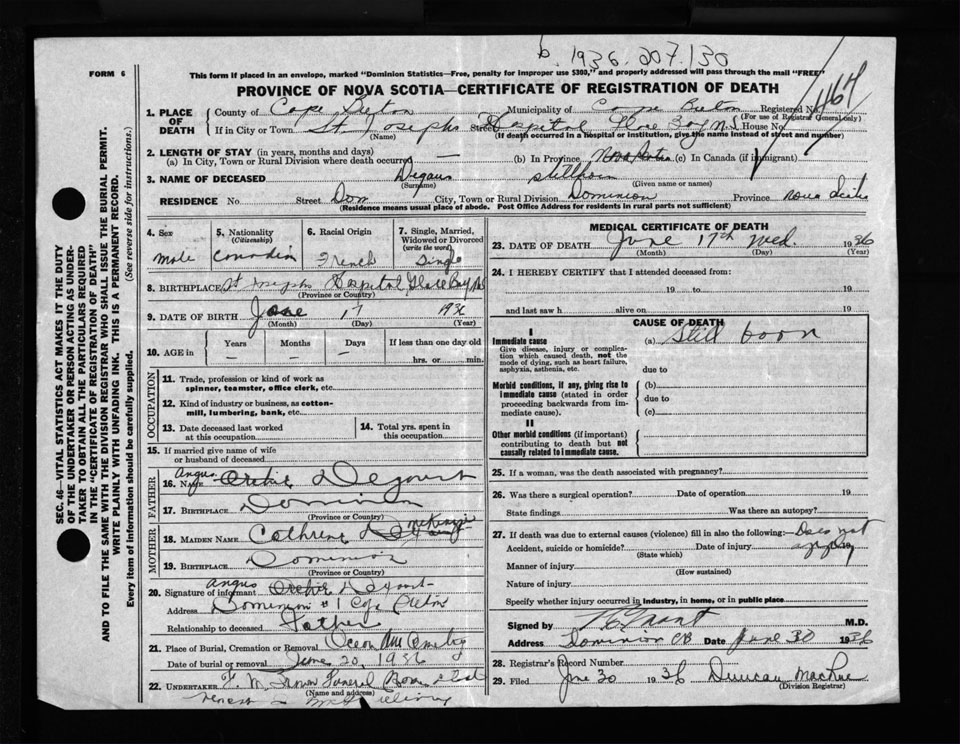 b. 1936. 207. 130
FORM 6
This form if placed in an envelope, marked "Dominion Statistics—Free, penalty for improper use $300," and properly addressed will pass through the mail "FREE"
PROVINCE OF NOVA SCOTIA—CERTIFICATE OF REGISTRATION OF DEATH
1. PLACE OF DEATH County of Cape Breton Municipality of Cape Breton Registered No. 1167
(For use of Registrar General only)
If in City or Town St Josephs Street Hospital Glace Bay N.S House No.
(Name) (If death occurred in a hospital or institution, give the name instead of street and number)
2. LENGTH OF STAY (in years, months and days)
(a) In City, Town or Rural Division where death occurred — (b) In Province Nova Scotia (c) In Canada (if immigrant)
3. NAME OF DECEASED stillborn
(Surname) (Given name or names)
RESIDENCE No Street Dom City, Town or Rural Division Dominion Province Nova Scotia
(Residence means usual place of abode. Post Office Address for residents in rural parts not sufficient)
4. Sex 5. Nationality (Citizenship) 6. Racial Origin 7. Single, Married, Widowed or Divorced (write the word)
Male Canadian French Single
8. BIRTHPLACE St Josephs Hospital Glace Bay NS
(Province or Country)
9. DATE OF BIRTH June 17 1936
(Month) (Day) (Year)
10. AGE in Years Months Days If less than one day old
— — — hrs. or min.
OCCUPATION
11. Trade, profession or kind of work as spinner, teamster, office clerk, etc.
12. Kind of industry or business, as cotton-mill, lumbering, bank, etc.
13. Date deceased last worked at this occupation
14. Total yrs. spent in this occupation
15. If married give name of wife or husband of deceased
FATHER
Angus
16. Name Archie
17. Birthplace Dominion
(Province or Country)
MOTHER
18. Maiden Name Cathrine McKenzie
19. Birthplace Dominion
(Province or Country)
Angus
20. Signature of informant Archie
Address Dominion #1 Cape Breton
Relationship to deceased Father
21. Place of Burial, Cremation or Removal
Date of burial or removal June 20, 1936
22. UNDERTAKER Funeral Home
(Name and address)
MEDICAL CERTIFICATE OF DEATH
23. DATE OF DEATH June 17th Wed. 1936
(Month) (Day) (Year)
24. I HEREBY CERTIFY that I attended deceased from:
19 to 19
and last saw h alive on 19
CAUSE OF DEATH
I
Immediate cause (a) Still born
Give disease, injury or complication which caused death, not the mode of dying, such as heart failure, asphyxia, asthenia, etc.
due to
Morbid conditions, if any, giving rise to immediate cause (stated in order proceeding backwards from immediate cause).
(b)
due to
(c)
II
Other morbid conditions (if important) contributing to death but not causally related to immediate cause.
25. If a woman, was the death associated with pregnancy?
26. Was there a surgical operation? Date of operation 19
State findings Was there an autopsy?
27. If death was due to external causes (violence) fill in also the following:— Does not apply
Accident, suicide or homicide? Date of injury
(State which)
Manner of injury
(How sustained)
Nature of injury
Specify whether injury occurred in industry, in home, or in public place
Signed by M.D.
Address Dominion CB Date June 30 1936
28. Registrar's Record Number
29. Filed June 30 1936 Duncan
(Division Registrar)
SEC. 46—VITAL STATISTICS ACT MAKES IT THE DUTY
OF THE UNDERTAKER OR PERSON ACTING AS UNDER-
TAKER TO OBTAIN ALL THE PARTICULARS REQUIRED
IN THE "CERTIFICATE OF REGISTRATION OF DEATH"
AND TO FILE THE SAME WITH THE DIVISION REGISTRAR WHO SHALL ISSUE THE BURIAL PERMIT.
WRITE PLAINLY WITH UNFADING INK. THIS IS A PERMANENT RECORD.
Every item of information should be carefully supplied. (See reverse side for instructions.)